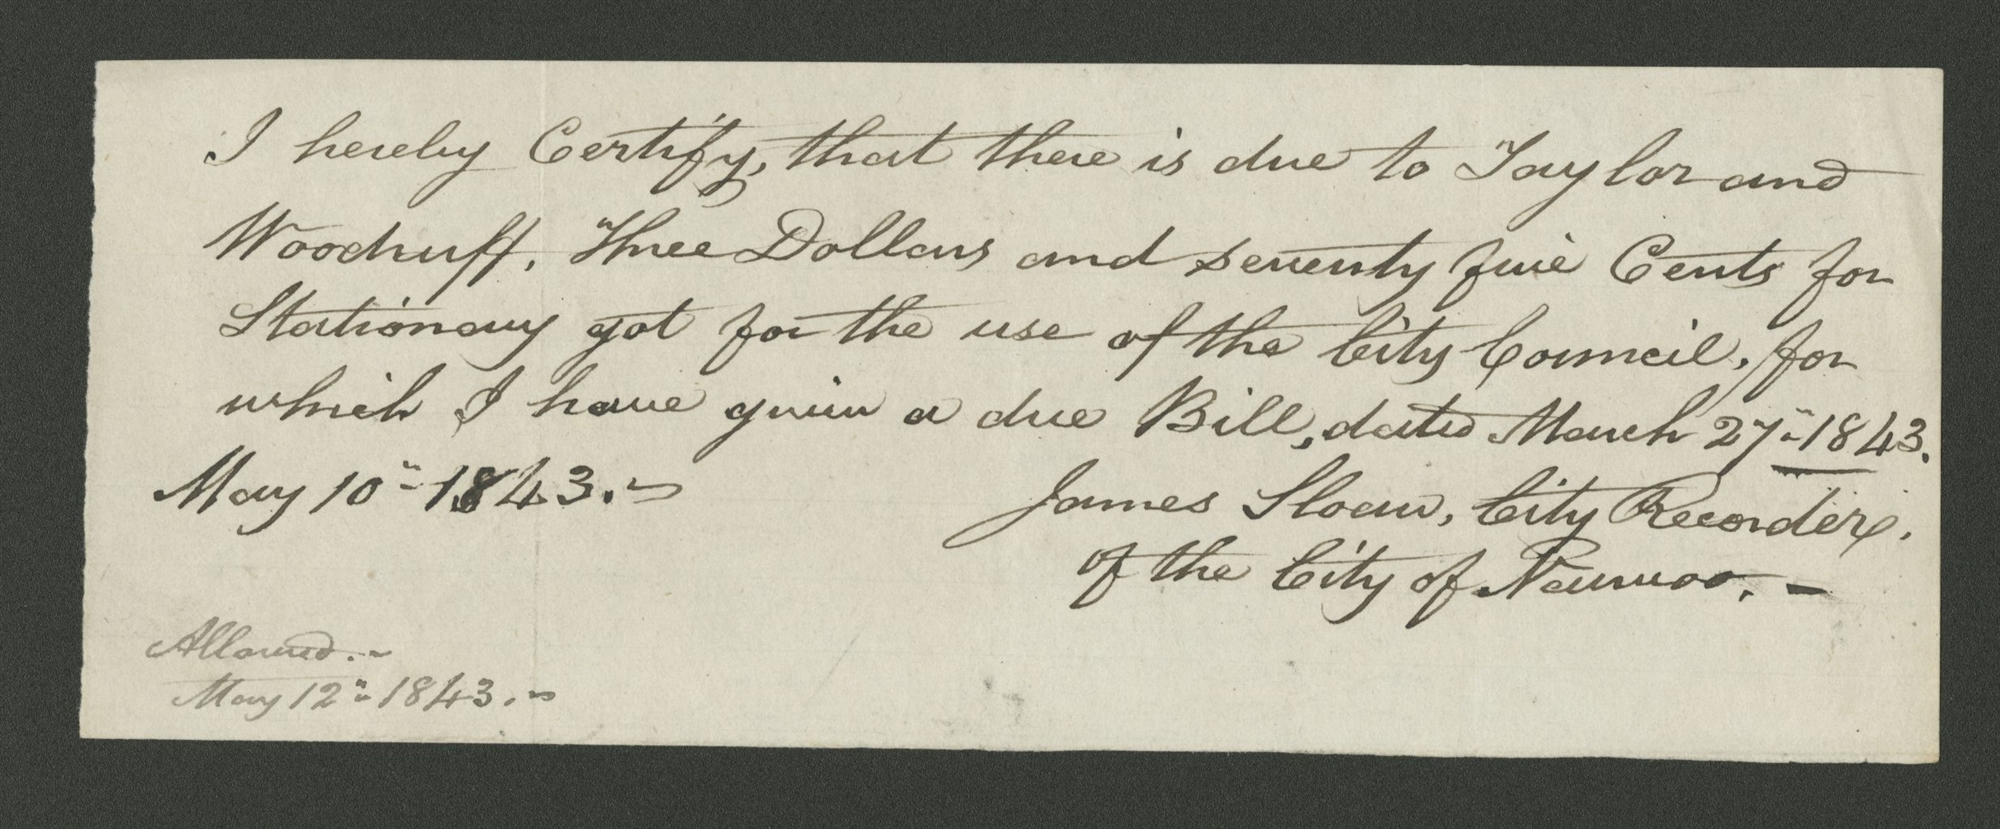 I hereby Certify, that there is due to Taylor and
Woodruff, Three Dollars and seventy five Cents for
Stationary got for the use of the City Council, for
which I have given a due Bill, dated March 27" 1843.
May 10" 1843.~
James Sloan, City Recorder,
of the City of Nauvoo. -
Allowed.~
May 12" 1843.~